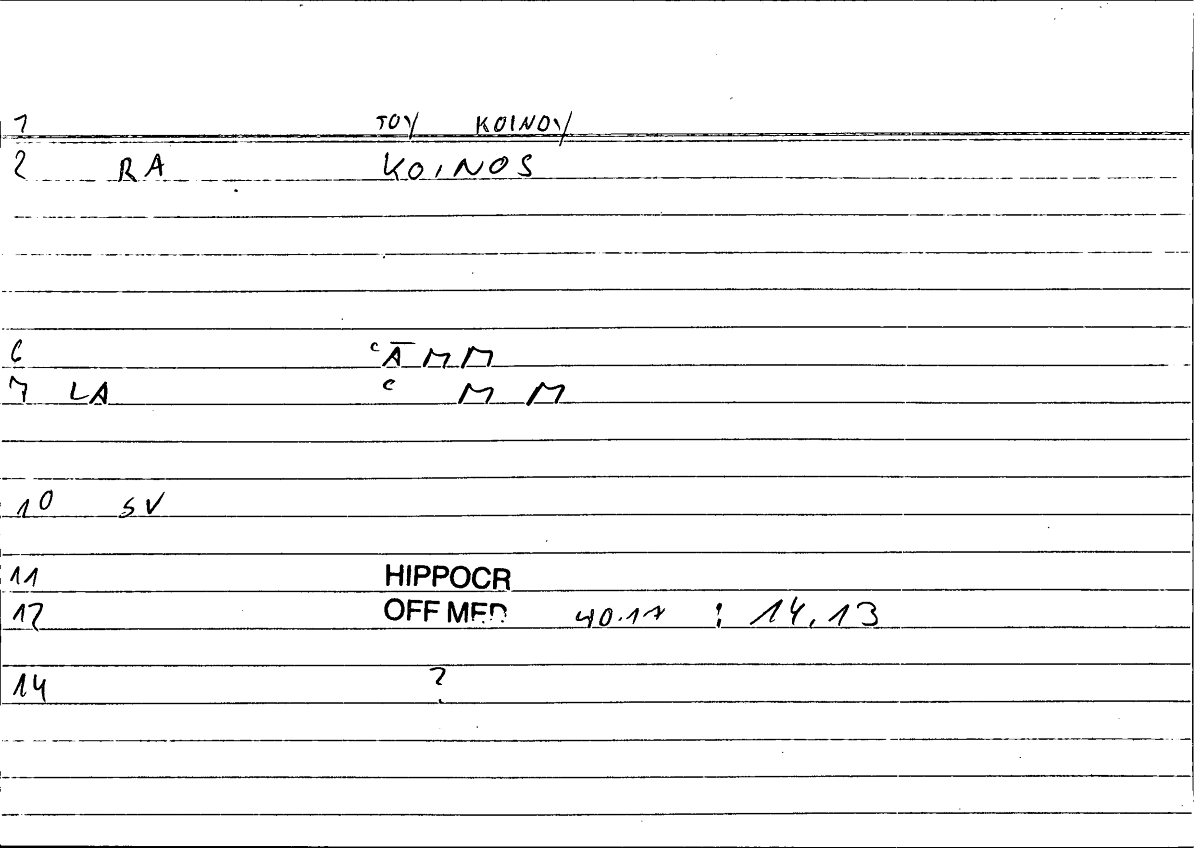 1 ΤΟΥ ΚΟΙΝΟΥ
2 RA KOINOS
6 ᶜĀMM
7 LA ᶜ M M
10 SV
11 HIPPOCR
12 OFF MED 40.17 : 14,13
14 ?